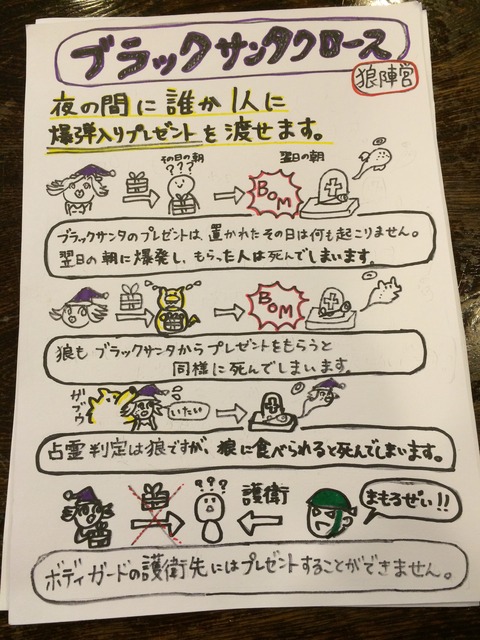 ブラックサンタクロース
狼陣営
夜の間に誰か1人に
爆弾入りプレゼントを渡せます。
その日の朝
翌日の朝
???
BOM
ブラックサンタのプレゼントは、置かれたその日は何も起こりません。
翌日の朝に爆発し、もらった人は死んでしまいます。
BOM
狼もブラックサンタからプレゼントをもらうと
同様に死んでしまいます。
ガブウ
いたい
占霊判定は狼ですが、狼に食べられると死んでしまいます。
???
護衛
まもるぜい!!
ボディガードの護衛先にはプレゼントすることができません。